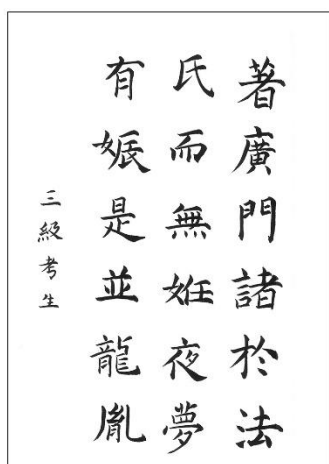 著廣門諸於法
氏而無姙夜夢
有娠是並龍胤
三級考生